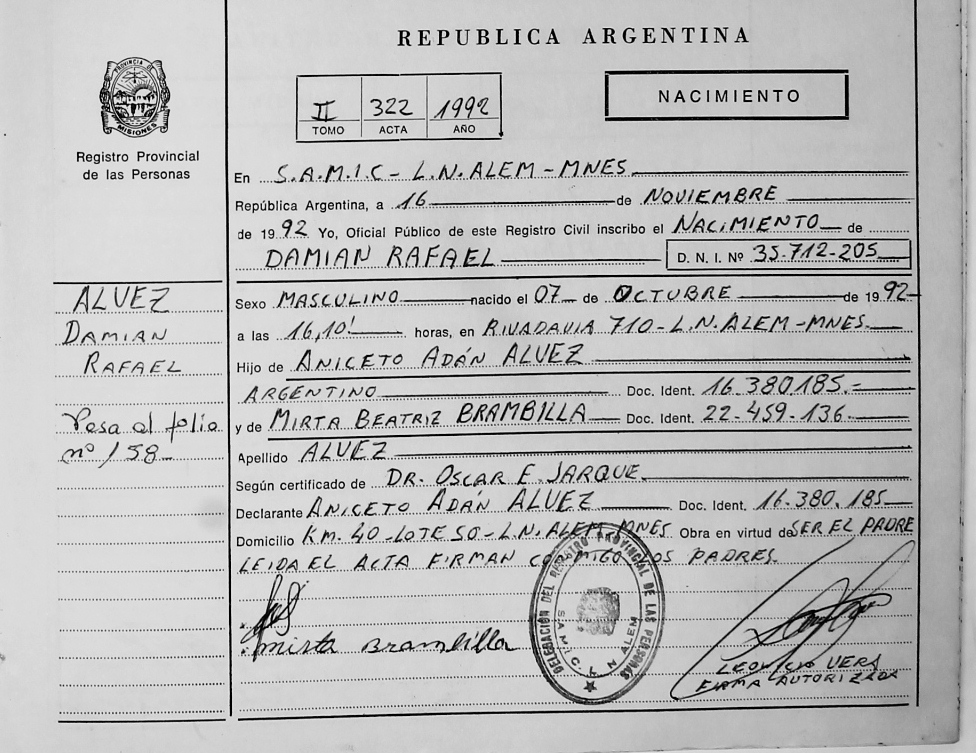 REPUBLICA ARGENTINA
PROVINCIA DE
MISIONES
Registro Provincial
de las Personas
II 322 1992
TOMO ACTA AÑO
NACIMIENTO
En S.A.M.I.C - L.N. ALEM - MNES
República Argentina, a 16 de NOVIEMBRE
de 1992 Yo, Oficial Público de este Registro Civil inscribo el NACIMIENTO de
DAMIAN RAFAEL D. N. I. Nº 35-712-205
ALVEZ
DAMIAN
RAFAEL
Pasa al folio
nº 158
Sexo MASCULINO nacido el 07 de OCTUBRE de 1992
a las 16,10' horas, en RIVADAVIA 710 - L.N. ALEM - MNES.
Hijo de ANICETO ADÁN ALVEZ
ARGENTINO Doc. Ident. 16.380185.-
y de MIRTA BEATRIZ BRAMBILLA Doc. Ident. 22-459-136
Apellido ALVEZ
Según certificado de DR. OSCAR E. JARQUE.
Declarante ANICETO ADÁN ALVEZ Doc. Ident. 16.380.185
Domicilio KM. 40 - LOTE 50 - L.N. ALEM MNES Obra en virtud de SER EL PADRE
LEIDA EL ACTA FIRMAN CONMIGO LOS PADRES.
mirta Brambilla
DELEGACION DEL REGISTRO PROVINCIAL DE LAS PERSONAS
S.A.M.I.C. L N ALEM
LEONICIO VERA
FIRMA AUTORIZADA